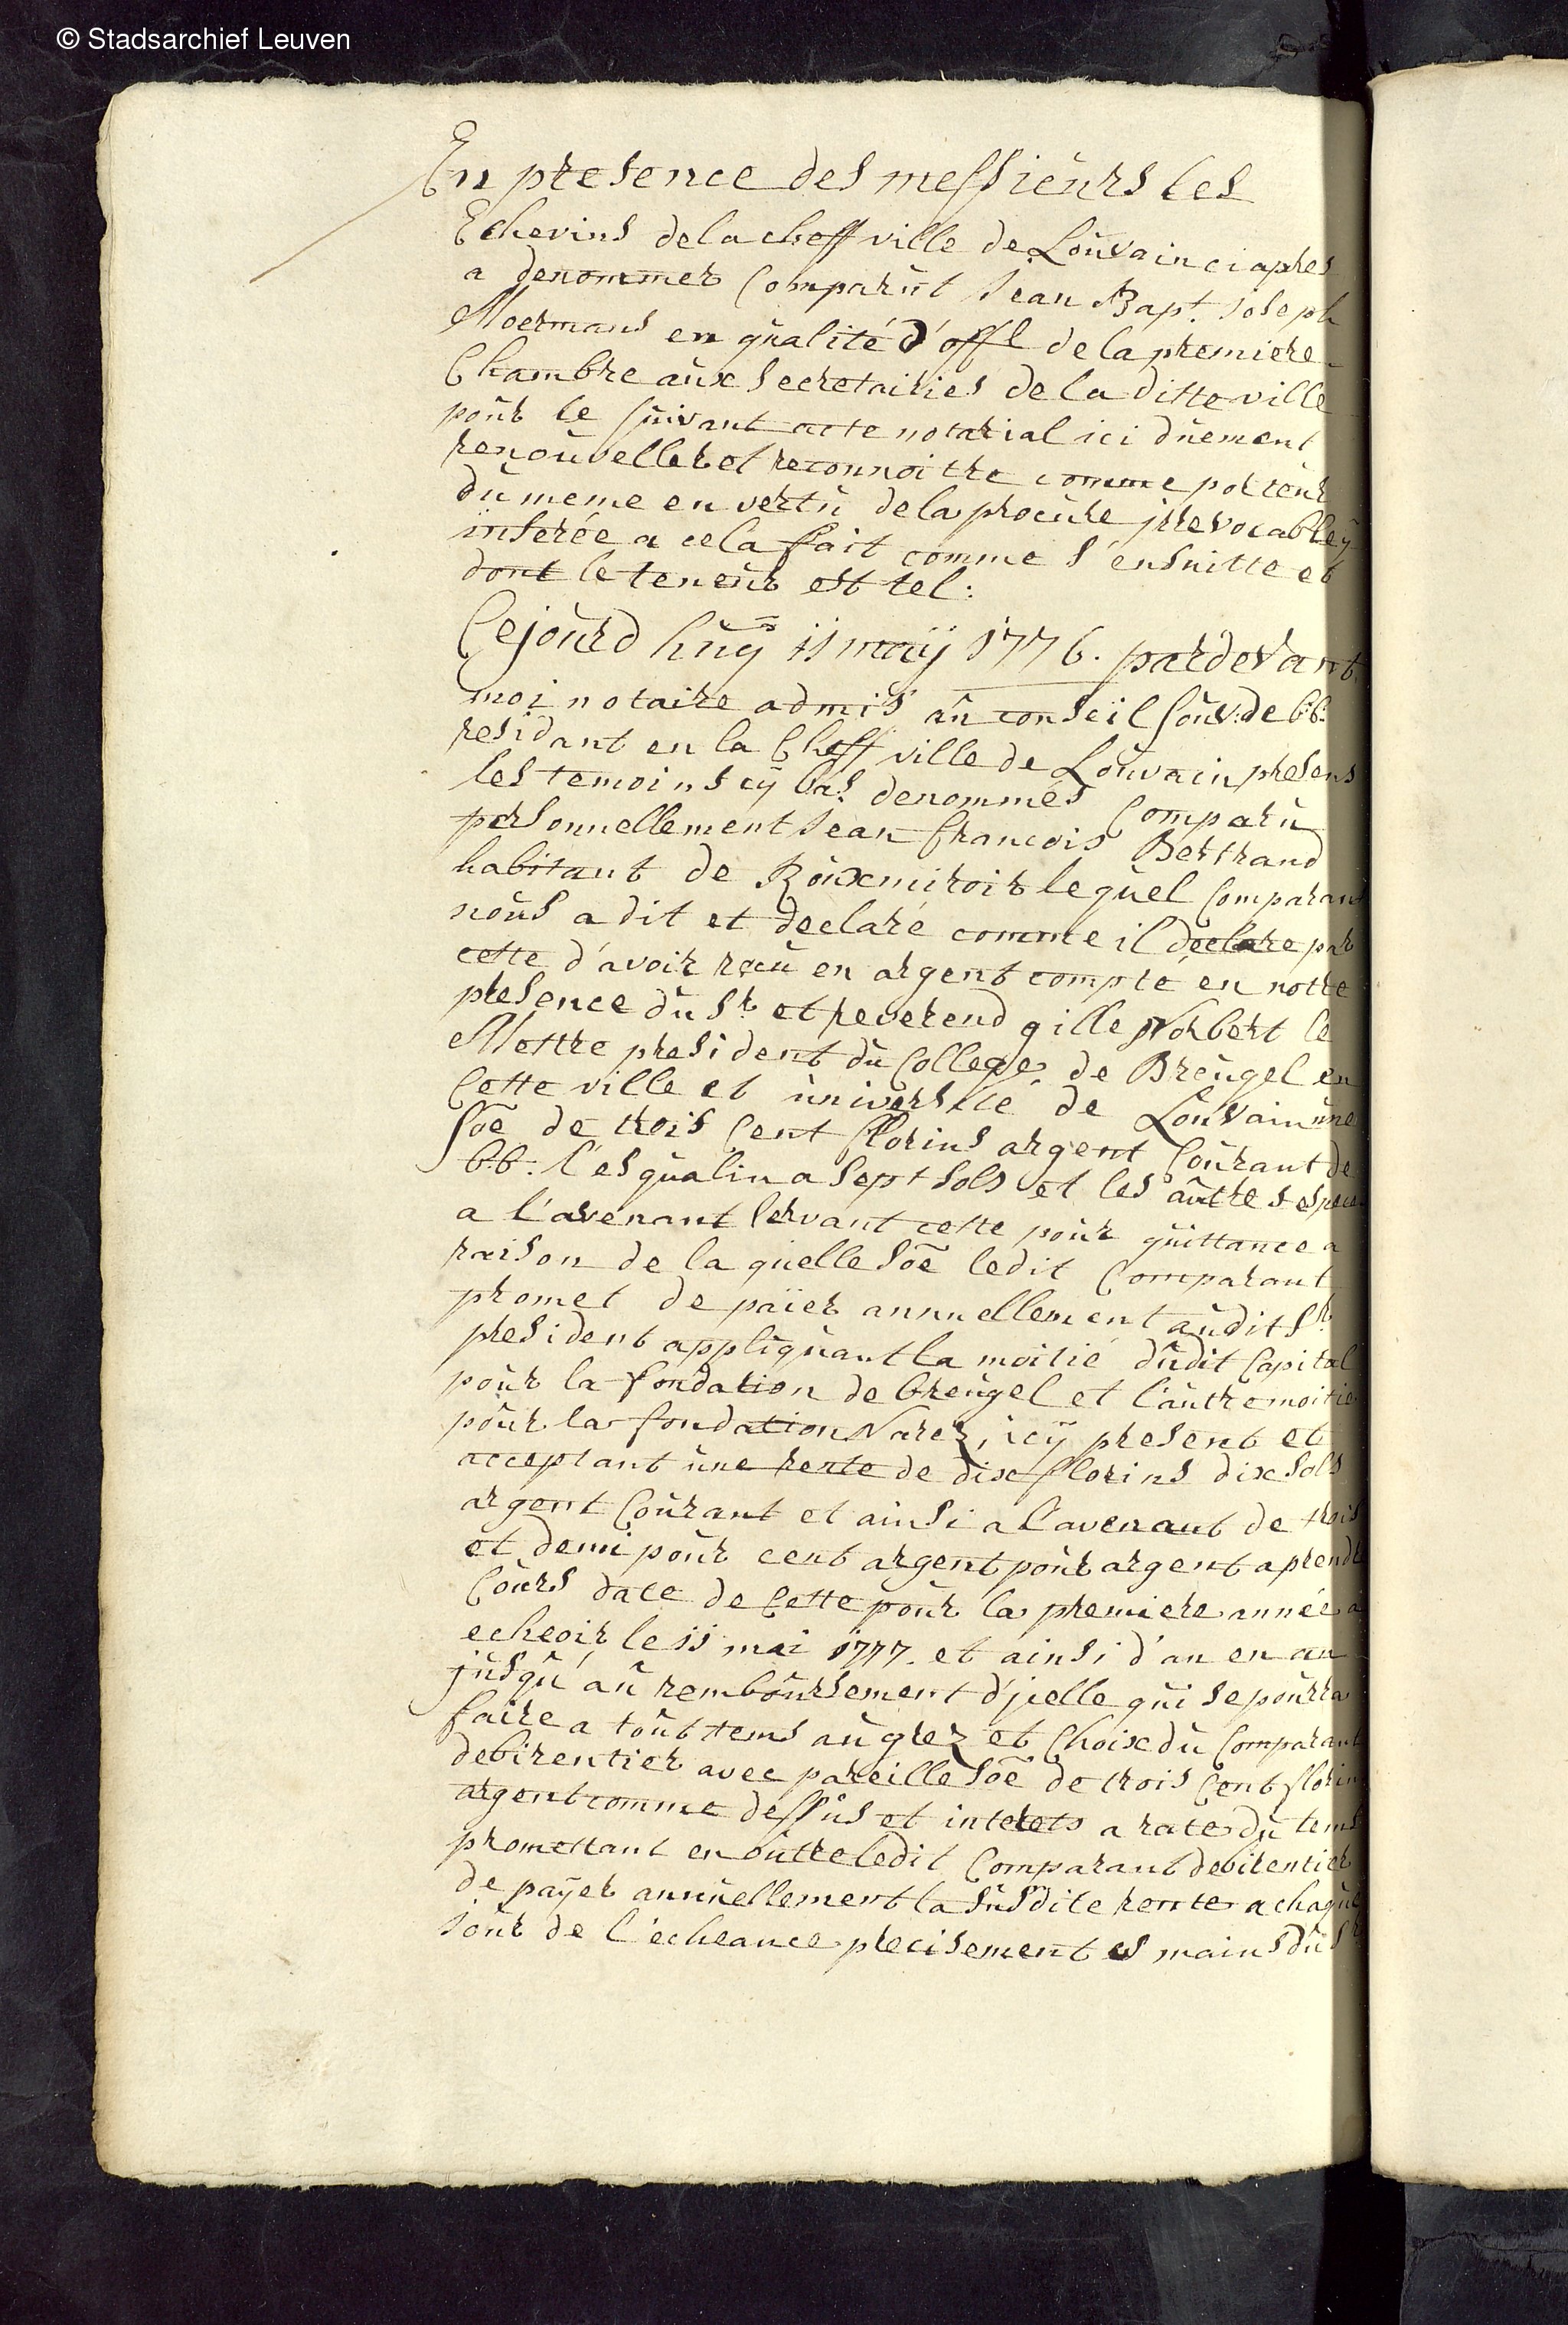 © Stadsarchief Leuven
En presence des messieurs les
Echevins de la cheff ville de Louvain ci apres
a denommer Comparut Jean Bapt. Joseph
Moermans en qualité d'offl de la premiere
Chambre aux secretairies de la ditte ville
pour le suivant acte notarial ici duement
renouveller et reconnoitre comme porteur
du meme en vertu de la procure jrevocable y
inserée a cela fait comme s'ensuitte et
dont le teneur est tel:
Cejourd huy 11 maij 1776. pardevant
moi notaire admis au conseil souv: de bb:
residant en la Cheff ville de Louvain presens
les temoins cÿ bas denommés Comparu
personnellement Jean francois Bertrand
habitant de Rouxmiroir lequel Comparant
nous a dit et declaré comme il declare par
cette d'avoir recu en argent compté en notre
presence du Sr et reverend gille Norbert le
Mettre president du College de Breugel en
Cette ville et université de Louvain une
soē de trois Cent florins argent Courant de
bb: l'esqualin a sept sols et les autres especes
a l'avenant servant cette pour quittance a
raison de la quelle soē ledit Comparant
promet de païer annuellement audit Sr
president appliquant la moitié dudit Capital
pour la fondation de breugel et l'autre moitie
pour la fondation Narez, icÿ present et
acceptant une rente de dix florins dix sols
argent Courant et ainsi a l'avenant de trois
et demi pour cent argent pour argent a prendre
Cours date de Cette pour la premiere année a
echeoir le 11 mai 1777. et ainsi d'an en an
jusqu'au remboursement d'jcelle qui se pourra
faire a tout tems au grez et Choix du Comparant
debirentier avec pareille soē de trois Cent florins
argent comme dessus et interets a rate du tems
promettant en outre ledit Comparant debirentier
de payer annuellement la susdite rente a chaque
jour de l'écheance precisement es mains du Sr